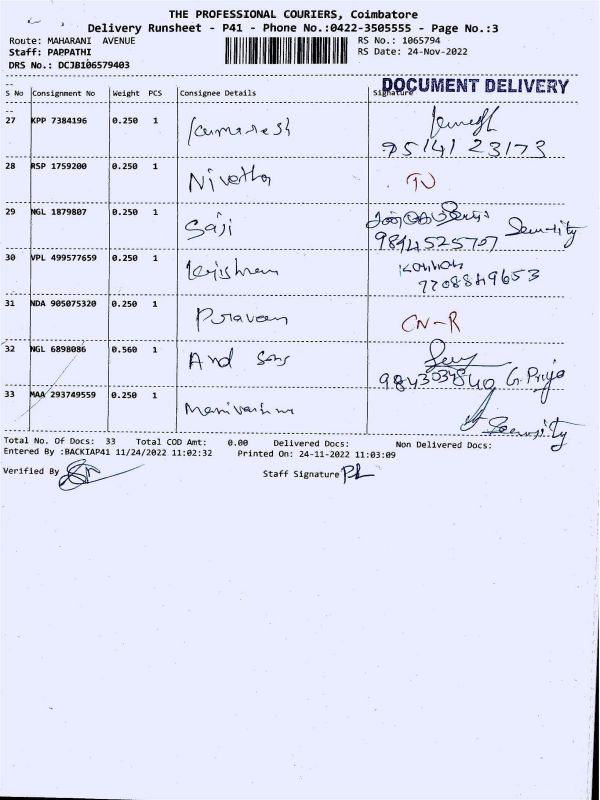 THE PROFESSIONAL COURIERS, Coimbatore
Delivery Runsheet - P41 - Phone No.:0422-3505555 - Page No.:3
Route: MAHARANI AVENUE RS No.: 1065794
Staff: PAPPATHI RS Date: 24-Nov-2022
DRS No.: DCJB106579403
DOCUMENT DELIVERY
S No Consignment No Weight PCS Consignee Details Signature
27 KPP 7384196 0.250 1 Kumaresh
95141 23173
28 RSP 1759200 0.250 1 Nivetha
29 NGL 1879807 0.250 1 Saji Security
9894525707
30 VPL 499577659 0.250 1 Krishnan Kannan
7708849653
31 NDA 905075320 0.250 1 Praveen CN-R
32 NGL 6898086 0.560 1 And Sons
G. Priya
33 MAA 293749559 0.250 1 Security
Total No. Of Docs: 33 Total COD Amt: 0.00 Delivered Docs: Non Delivered Docs:
Entered By :BACKIAP41 11/24/2022 11:02:32 Printed On: 24-11-2022 11:03:09
Verified By Staff Signature